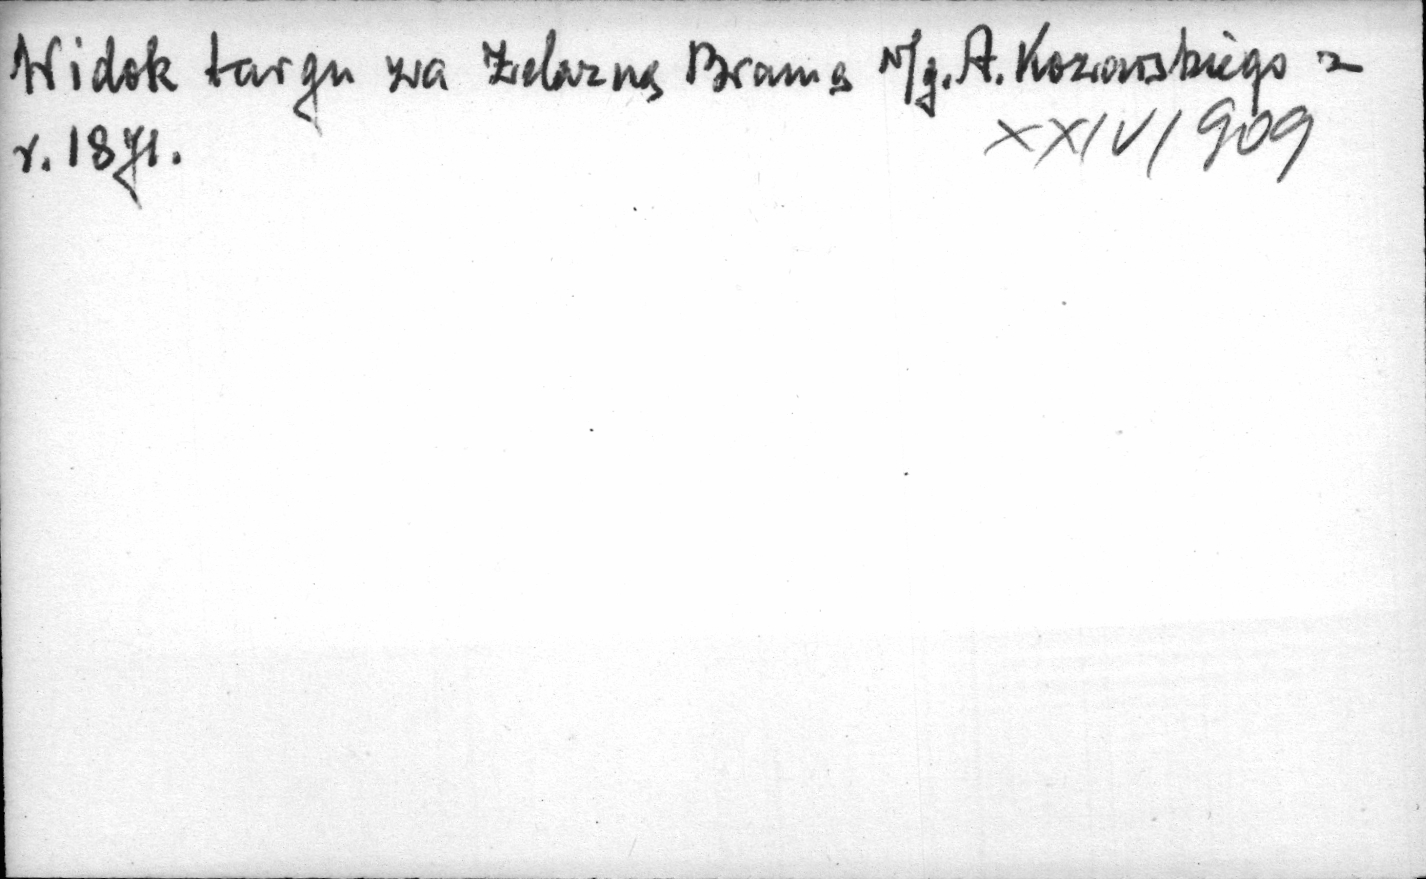 Widok targu za Żelazną Bramą w/g. A. Kozarskiego z
r. 1871.
XXIV/909